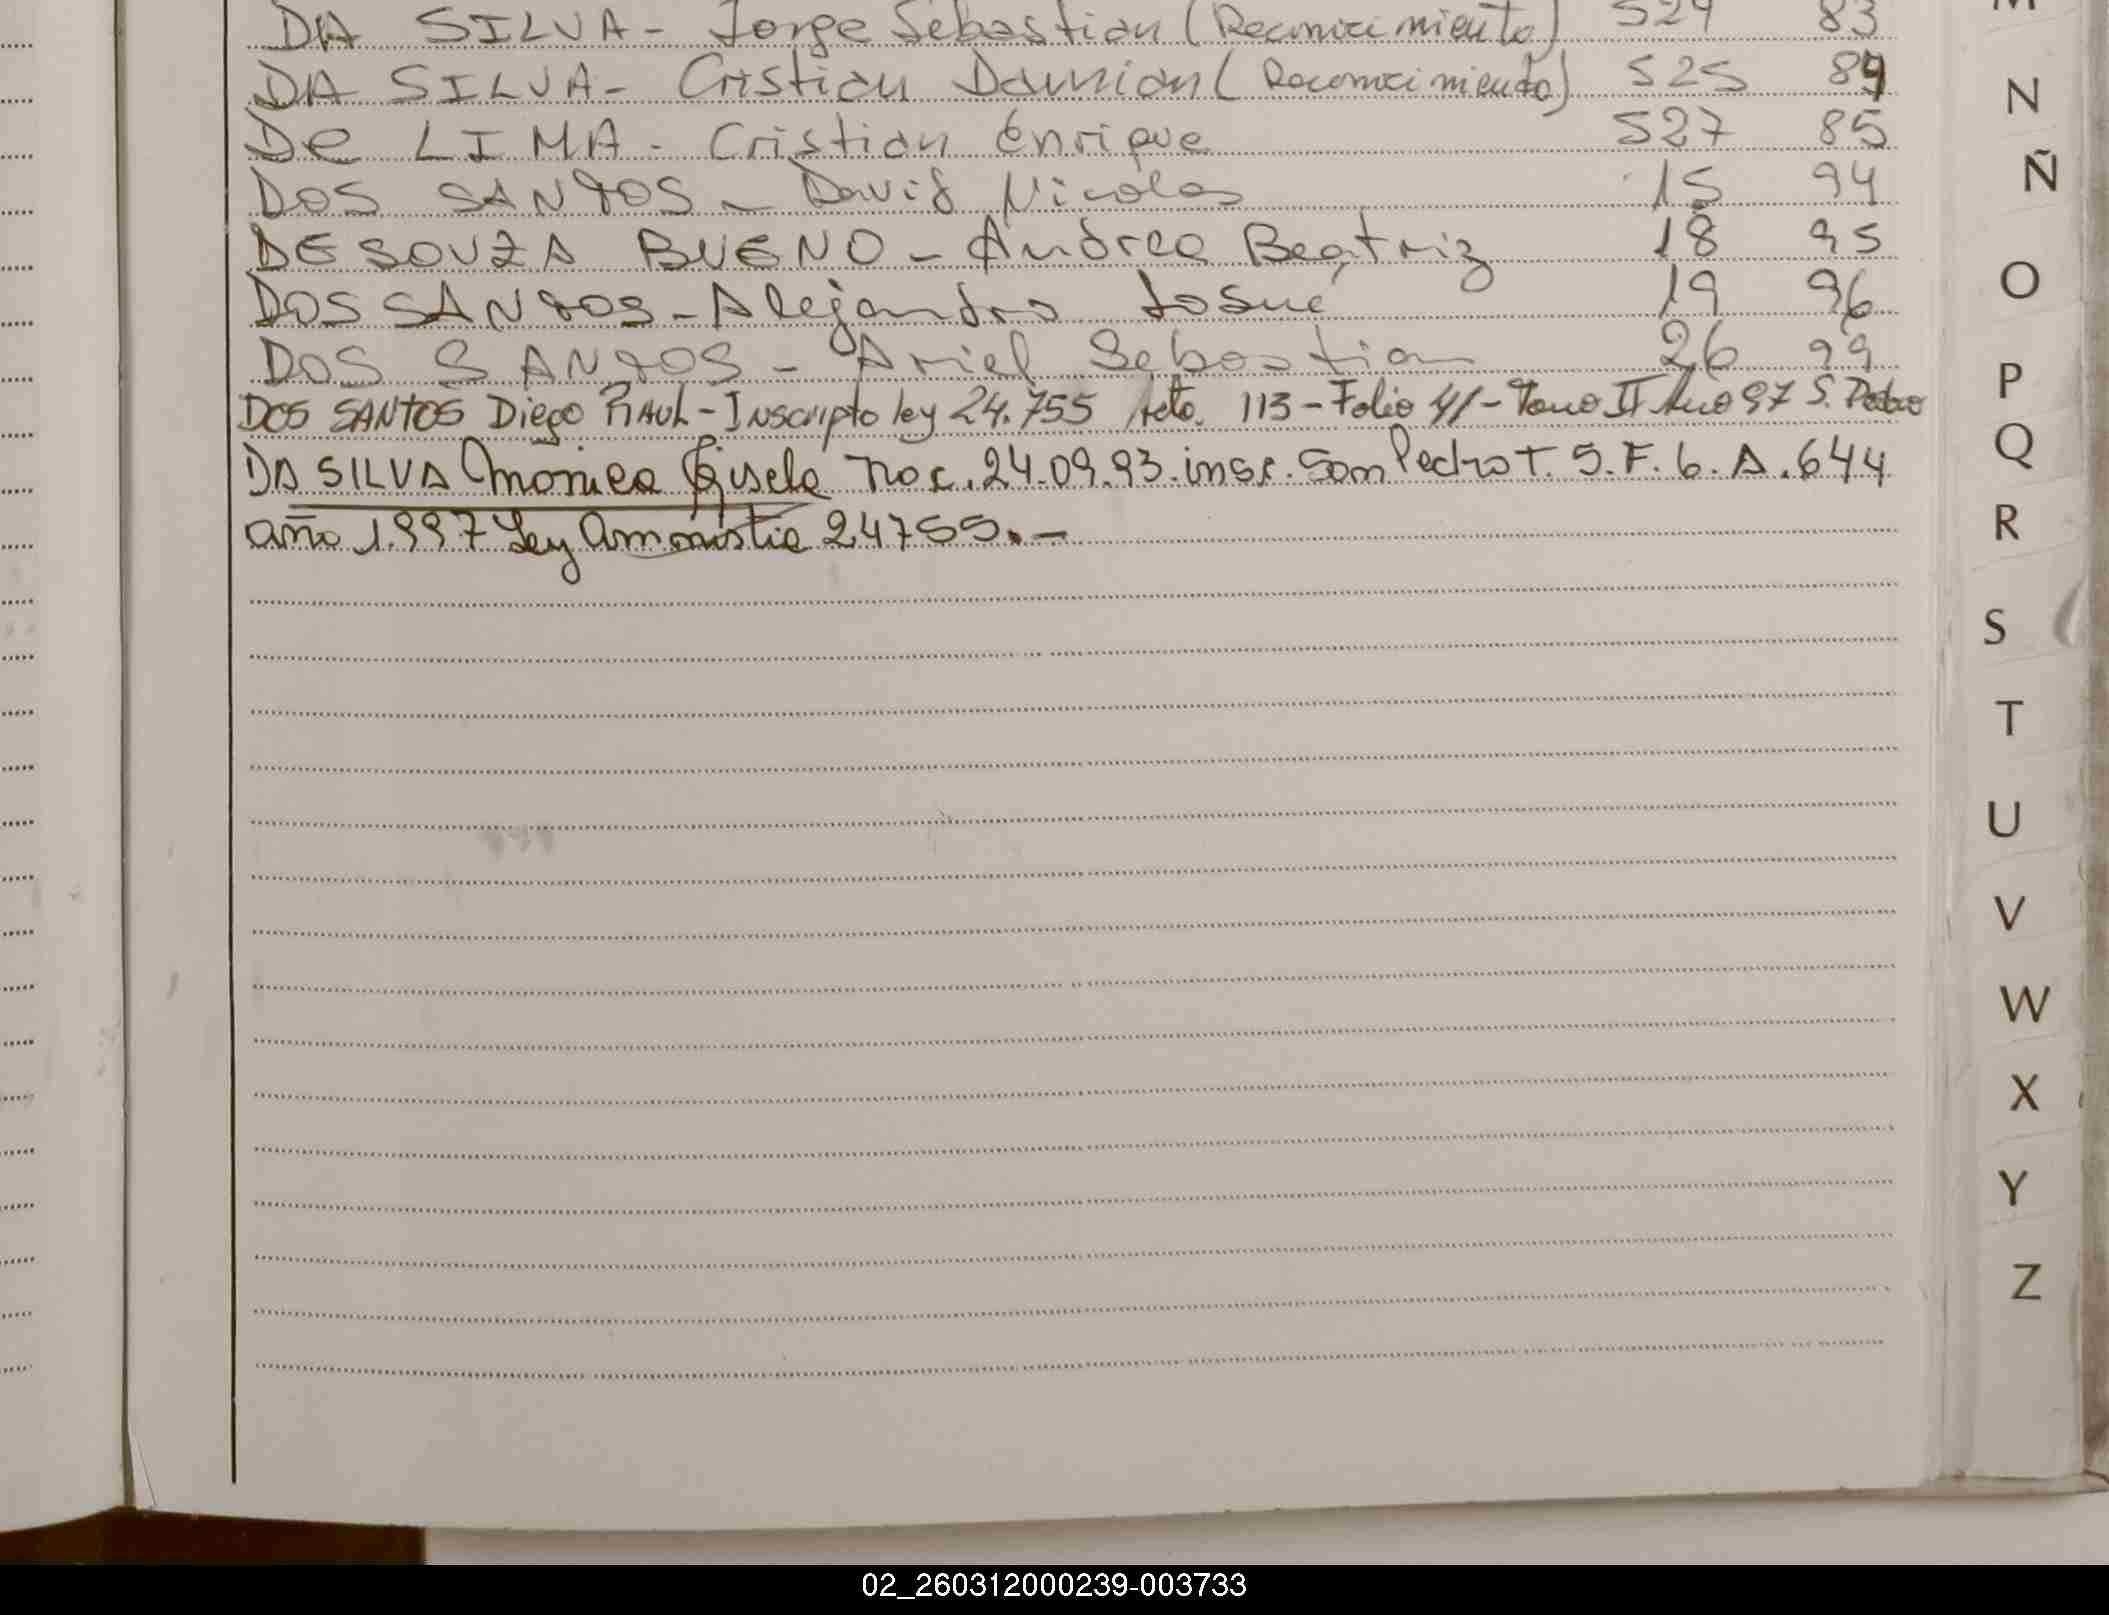 DA SILVA - Jorge Sebastian (Reconocimiento) 524 83
DA SILVA - Cristian Damian (Reconocimiento) 525 84
De LIMA - Cristian Enrique 527 85
DOS SANTOS - David Nicolas 15 94
DE SOUZA BUENO - Andrea Beatriz 18 95
DOS SANTOS - Alejandro Josue 19 96
DOS SANTOS - Ariel Sebastian 26 99
DOS SANTOS Diego RAUL - Inscripto ley 24.755 Acta. 113 - Folio 41 - Tomo II Año 97 S. Pedro
DA SILVA Monica Gisela nac. 24.09.93. insc. San Pedro T. 5. F. 6. A. 644
año 1.997 Ley Amnistia 24755.-
M
N
Ñ
O
P
Q
R
S
T
U
V
W
X
Y
Z
02_260312000239-003733